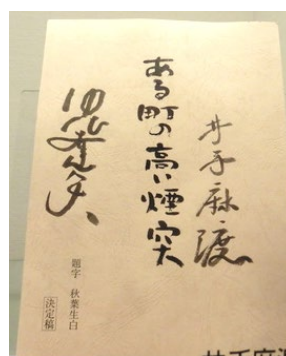 井手麻渡
ある町の高い煙突
題字 秋葉生白
決定稿